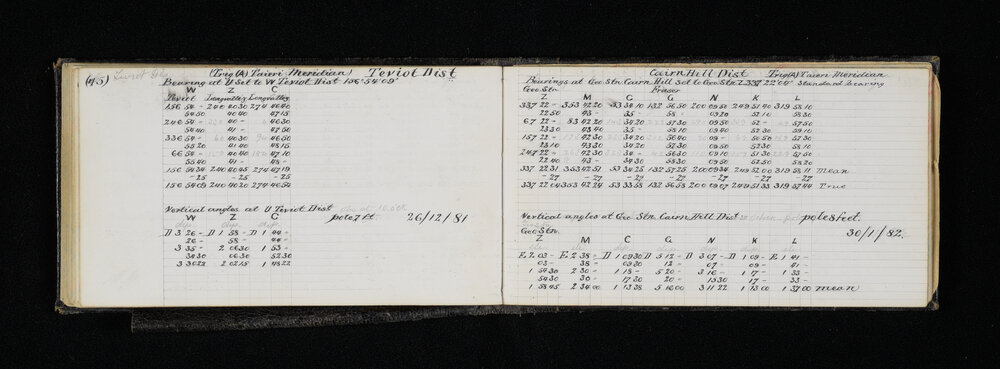 (45)
(Trig(A) Taieri Meridian) Teviot Dist
Bearing at U Set to W Teviot Dist 156°54'09"
W Z C
Teviot Longvalley Longvalley
156 54 - 240 40 30 274 46 40
54 50 40 40 47 15
246 54 - 40 - 46 30
54 40 41 - 47 50
336 54 - 40 30 46 50
55 20 41 40 48 15
66 54 - 40 40 47 10
55 40 41 - 48 -
156 54 34 240 40 45 274 47 19
- 25 - 25 - 25
156 54 09 240 40 20 274 46 54
Vertical angles at U Teviot Dist
W Z C pole 7 ft 26/12/81
D 3 26 - D 1 58 - D 1 44 -
26 - 58 - 44 -
3 35 - 2 06 30 1 53 -
34 30 06 30 52 30
3 30 22 2 02 15 1 48 22
Cairn Hill Dist Trig(A) Taieri Meridian
Bearings at Geo Stn Cairn Hill Set to Geo Stn Z 337°22'04" Standard bearing
Geo Stn Fraser
Z M C G N K L
337 22 - 353 42 20 53 34 10 132 56 50 200 09 50 249 51 40 319 58 10
22 50 43 - 35 - 58 - 09 20 52 10 58 30
67 22 - 83 42 20 34 20 57 30 09 50 52 - 57 50
23 30 43 40 35 - 58 10 09 40 52 30 59 10
157 22 - 42 30 34 20 56 40 09 - 50 50
23 10 43 30 34 20 57 30 09 50 52 30 58 10
247 22 - 42 30 34 - 56 30 09 10 51 30 57 50
22 40 43 - 34 30 58 30 09 - 52 50 58 20
337 22 31 353 42 51 53 34 25 132 57 25 200 09 34 249 52 00 319 58 11 Mean
- 27 - 27 - 27 - 27 - 27 - 27 - 27
337 22 04 353 42 24 53 33 58 132 56 58 200 09 07 249 51 33 319 57 44 True
Vertical angles at Geo Stn Cairn Hill Dist pole 8 feet.
Geo Stn. 30/1/82.
Z M C G N K L
E 2 03 - E 2 38 - D 1 09 30 D 5 12 - D 3 07 - D 1 09 - E 1 41 -
03 - 38 - 09 30 12 - 07 - 09 - 41 -
1 54 30 2 30 - 1 18 - 5 20 - 3 16 - 1 17 - 1 33 -
54 30 30 - 17 30 20 - 15 30 17 - 33 -
1 58 45 2 34 00 1 13 38 5 16 00 3 11 22 1 13 00 1 37 00 mean